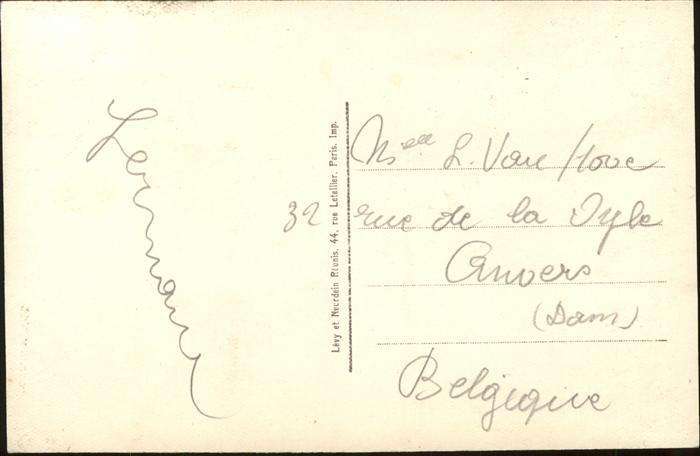 Lévy et Neurdein Réunis, 44, rue Letellier, Paris. Imp.
Melle L. Van Hove
32 rue de la Dyle
Anvers
(Dam)
Belgique